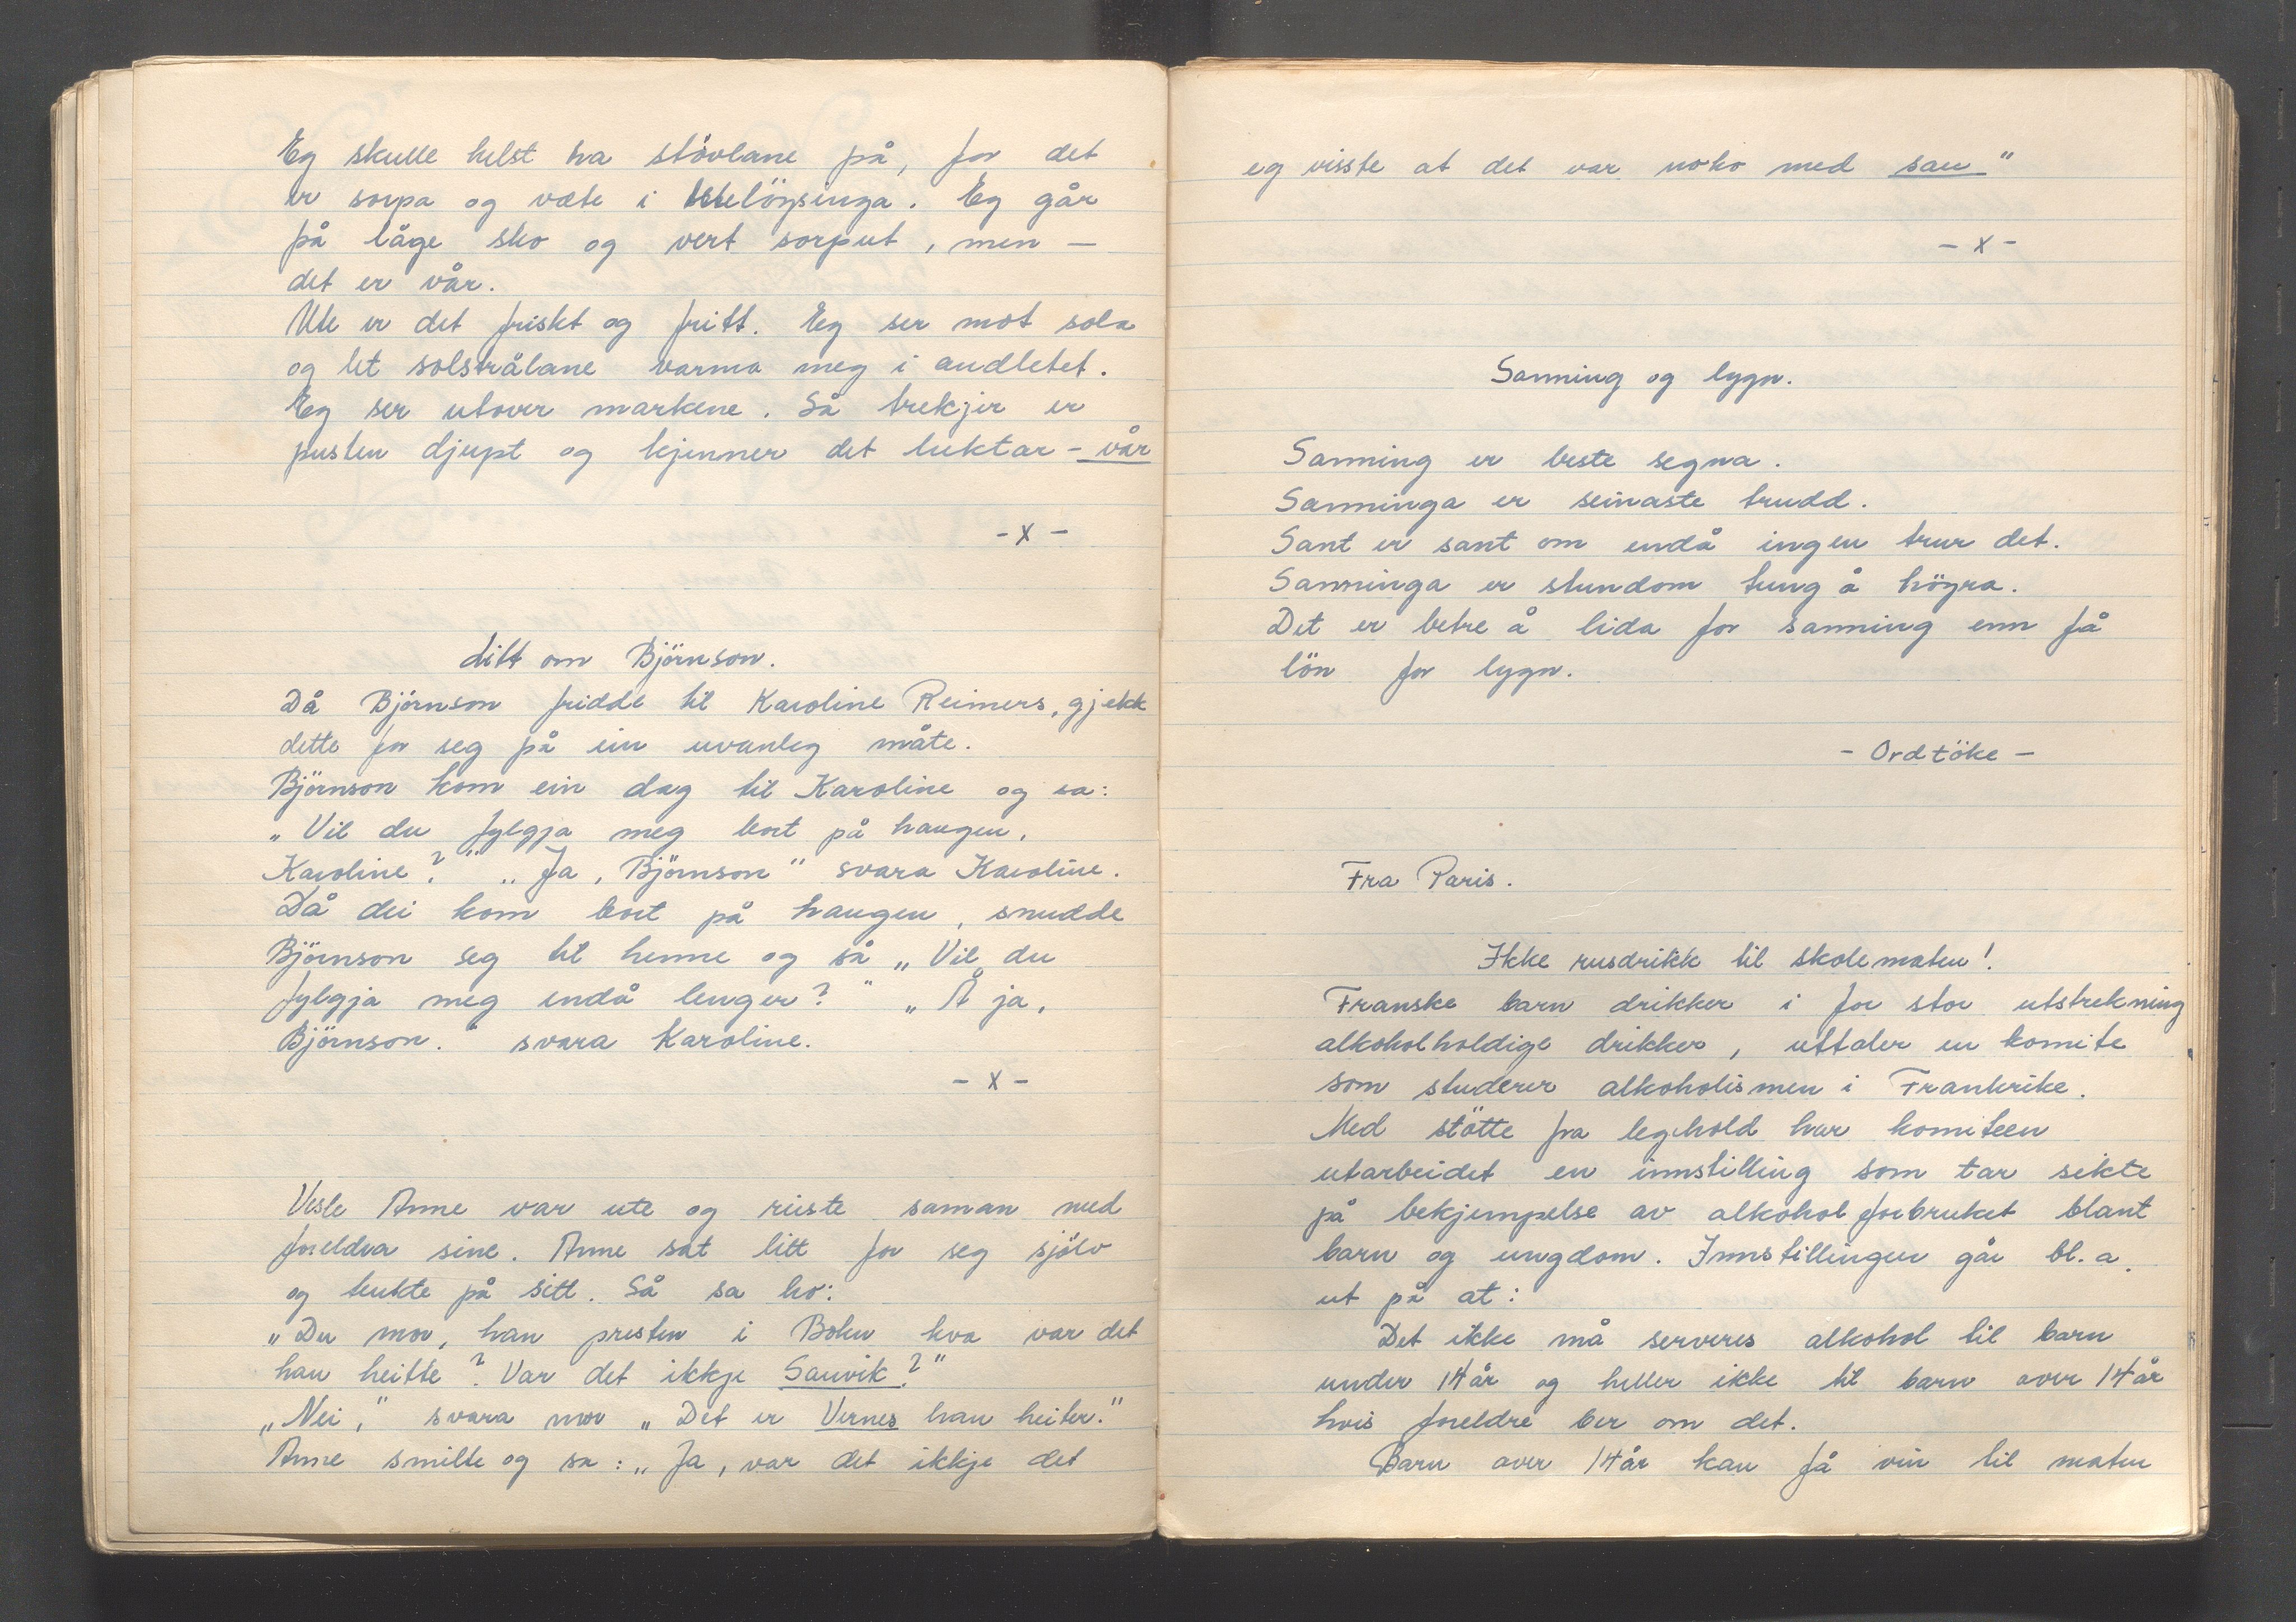 Eg skulle helst ha stövlane på, for det
er sorpa og væte i telelöysinga. Eg går
på låge sko og vert sorput, men —
det er vår.
Ute er det friskt og fritt. Eg ser mot sola
og let solstrålane varma meg i andletet.
Eg ser utover markene. Så trekjer er
pusten djupt og kjenner det luktar - vår
- x -
Litt om Björnson.
Då Björnson fridde til Karoline Reimers, gjekk
dette for seg på ein uvanleg måte.
Björnson kom ein dag til Karoline og sa:
„Vil du fylgja meg bort på haugen,
Karoline?" „Ja, Björnson" svara Karoline.
Då dei kom bort på haugen, snudde
Björnson seg til henne og så „Vil du
fylgja meg endå lenger?" „Å ja,
Björnson." svara Karoline.
- x -
Vesle Anne var ute og reiste saman med
foreldra sine. Anne sat litt for seg sjölv
og tenkte på sitt. Så sa ho:
„Du mor, han presten i Bokn kva var det
han heitte? Var det ikkje Sauvik?"
„Nei," svara mor „Det er Vernes han heiter."
Anne smilte og sa: „Ja, var det ikkje det
eg visste at det var noko med sau"
- x -
Sanning og lygn.
Sanning er beste segna.
Sanninga er seinaste trudd.
Sant er sant om endå ingen trur det.
Sanninga er stundom tung å högra.
Det er betre å lida for sanning enn få
lön for lygn.
- Ordtöke -
Fra Paris.
Ikke rusdrikk til skolematen!
Franske barn drikker i for stor utstrekning
alkoholholdige drikker, uttaler en komite
som studerer alkoholismen i Frankrike.
Med stötte fra legehold har komiteen
utarbeidet en innstilling som tar sikte
på bekjempelse av alkohol forbruket blant
barn og ungdom. Innstillingen går bl.a.
ut på at:
Det ikke må serveres alkohol til barn
under 14 år og heller ikke til barn over 14 år
hvis foreldre ber om det.
Barn over 14 år kan få vin til maten